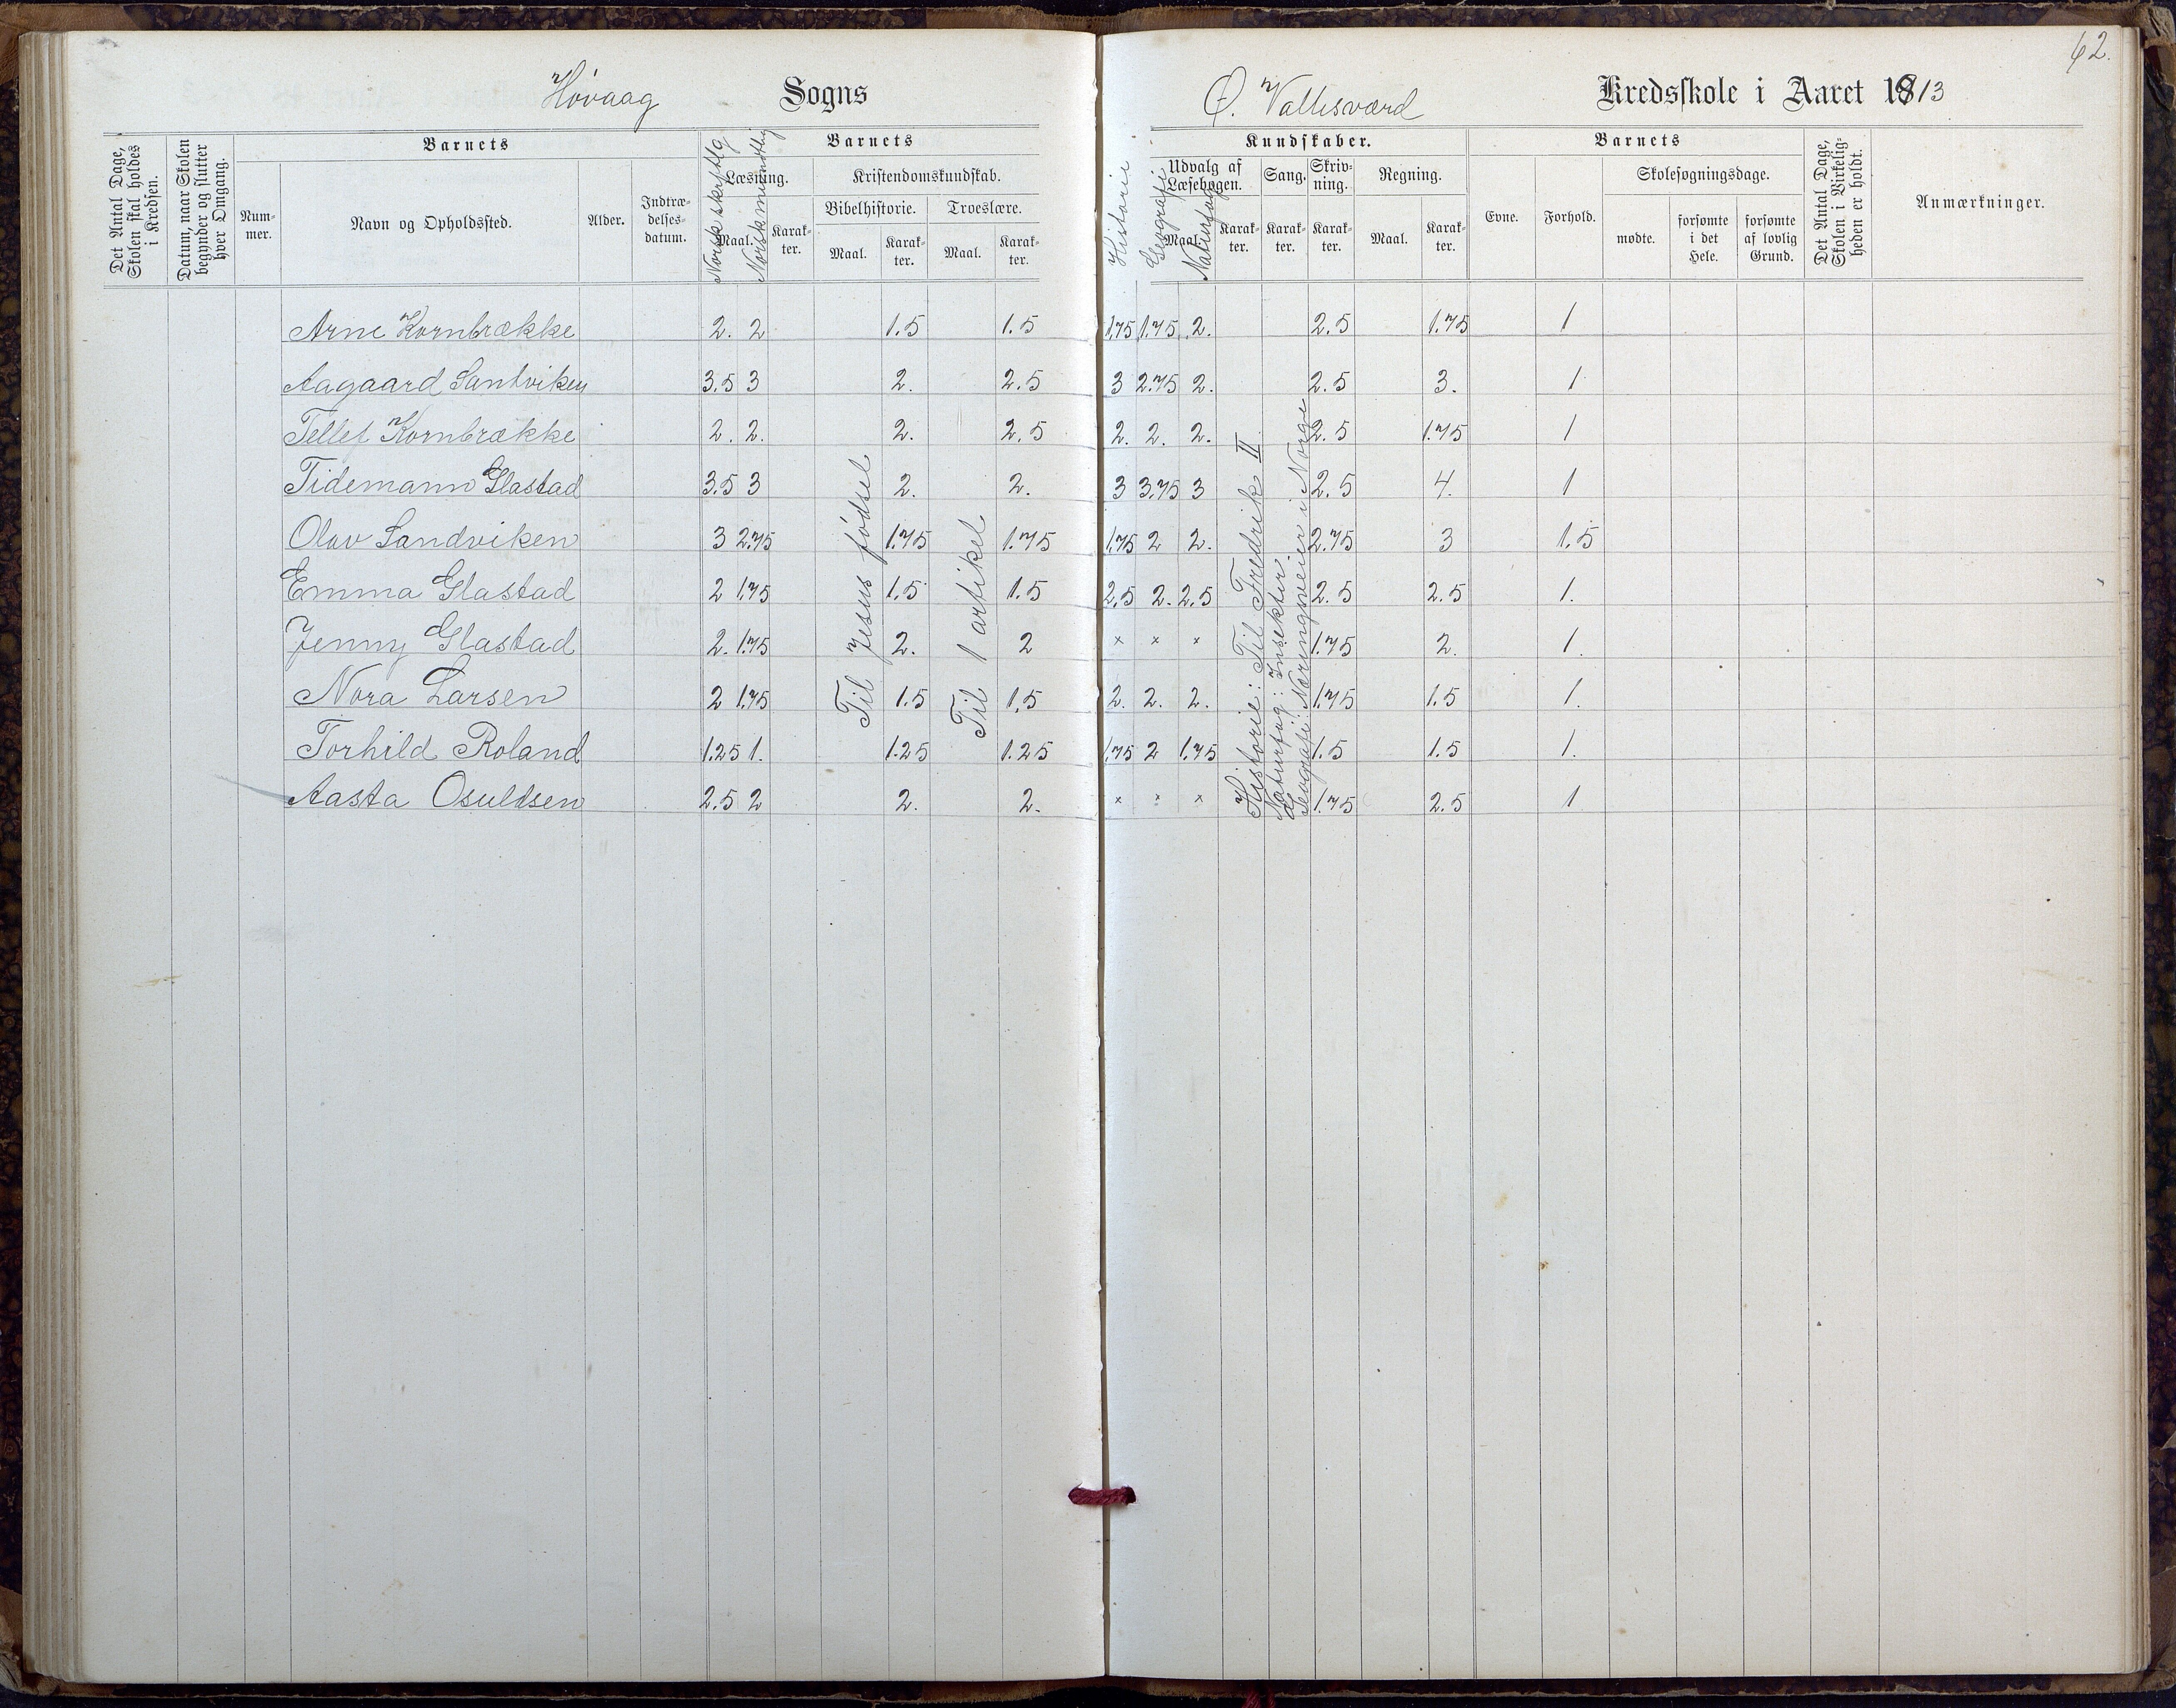 62.
Høvaag Sogns
Ø. Vallesværd Kredsskole i Aaret 1913
Det Antal Dage, Skolen skal holdes i Kredsen.
Datum, naar Skolen begynder og slutter hver Omgang.
Barnets
Nummer.
Navn og Opholdssted.
Alder.
Indtrædelsesdatum.
Barnets
Læsning.
Maal.
Karakter.
Norsk skriftlig
Norsk muntlig
Kristendomskundskab.
Bibelhistorie.
Troeslære.
Maal.
Karakter.
Maal.
Karakter.
Kundskaber.
Historie
Geografi
Naturfag
Udvalg af Læsebogen.
Maal.
Karakter.
Sang.
Karakter.
Skrivning.
Karakter.
Regning.
Maal.
Karakter.
Barnets
Evne.
Forhold.
Skolesøgningsdage.
mødte.
forsømte i det Hele.
forsømte af lovlig Grund.
Det Antal Dage, Skolen i Virkeligheden er holdt.
Anmærkninger.
Arne Kornbrække 2. 2 1.5 1.5 1.75 1.75 2. 2.5 1.75 1
Aagaard Santviken 3.5 3 2. 2.5 3 2.75 2. 2.5 3. 1
Tellef Kornbrække 2. 2. 2. 2.5 2. 2. 2. 2.5 1.75 1
Tidemann Glastad 3.5 3 2. 2. 3 3.75 3 2.5 4. 1
Olav Sandviken 3 2.75 1.75 1.75 1.75 2 2. 2.75 3 1.5
Emma Glastad 2 1.75 1.5 1.5 2.5 2. 2.5 2.5 2.5 1.
Jenny Glastad 2. 1.75 2. 2 × × × 1.75 2. 1.
Nora Larsen 2 1.75 1.5 1.5 2. 2. 2. 1.75 1.5 1.
Torhild Roland 1.25 1. 1.25 1.25 1.75 2 1.75 1.5 1.5 1.
Aasta Osuldsen 2.5 2 2. 2. × × × 1.75 2.5 1
Til Jesus fødsel
Til 1 artikel
Historie: Til Fredrik II
Naturfag: Insekter
Geografi: Næringsveier i Norge